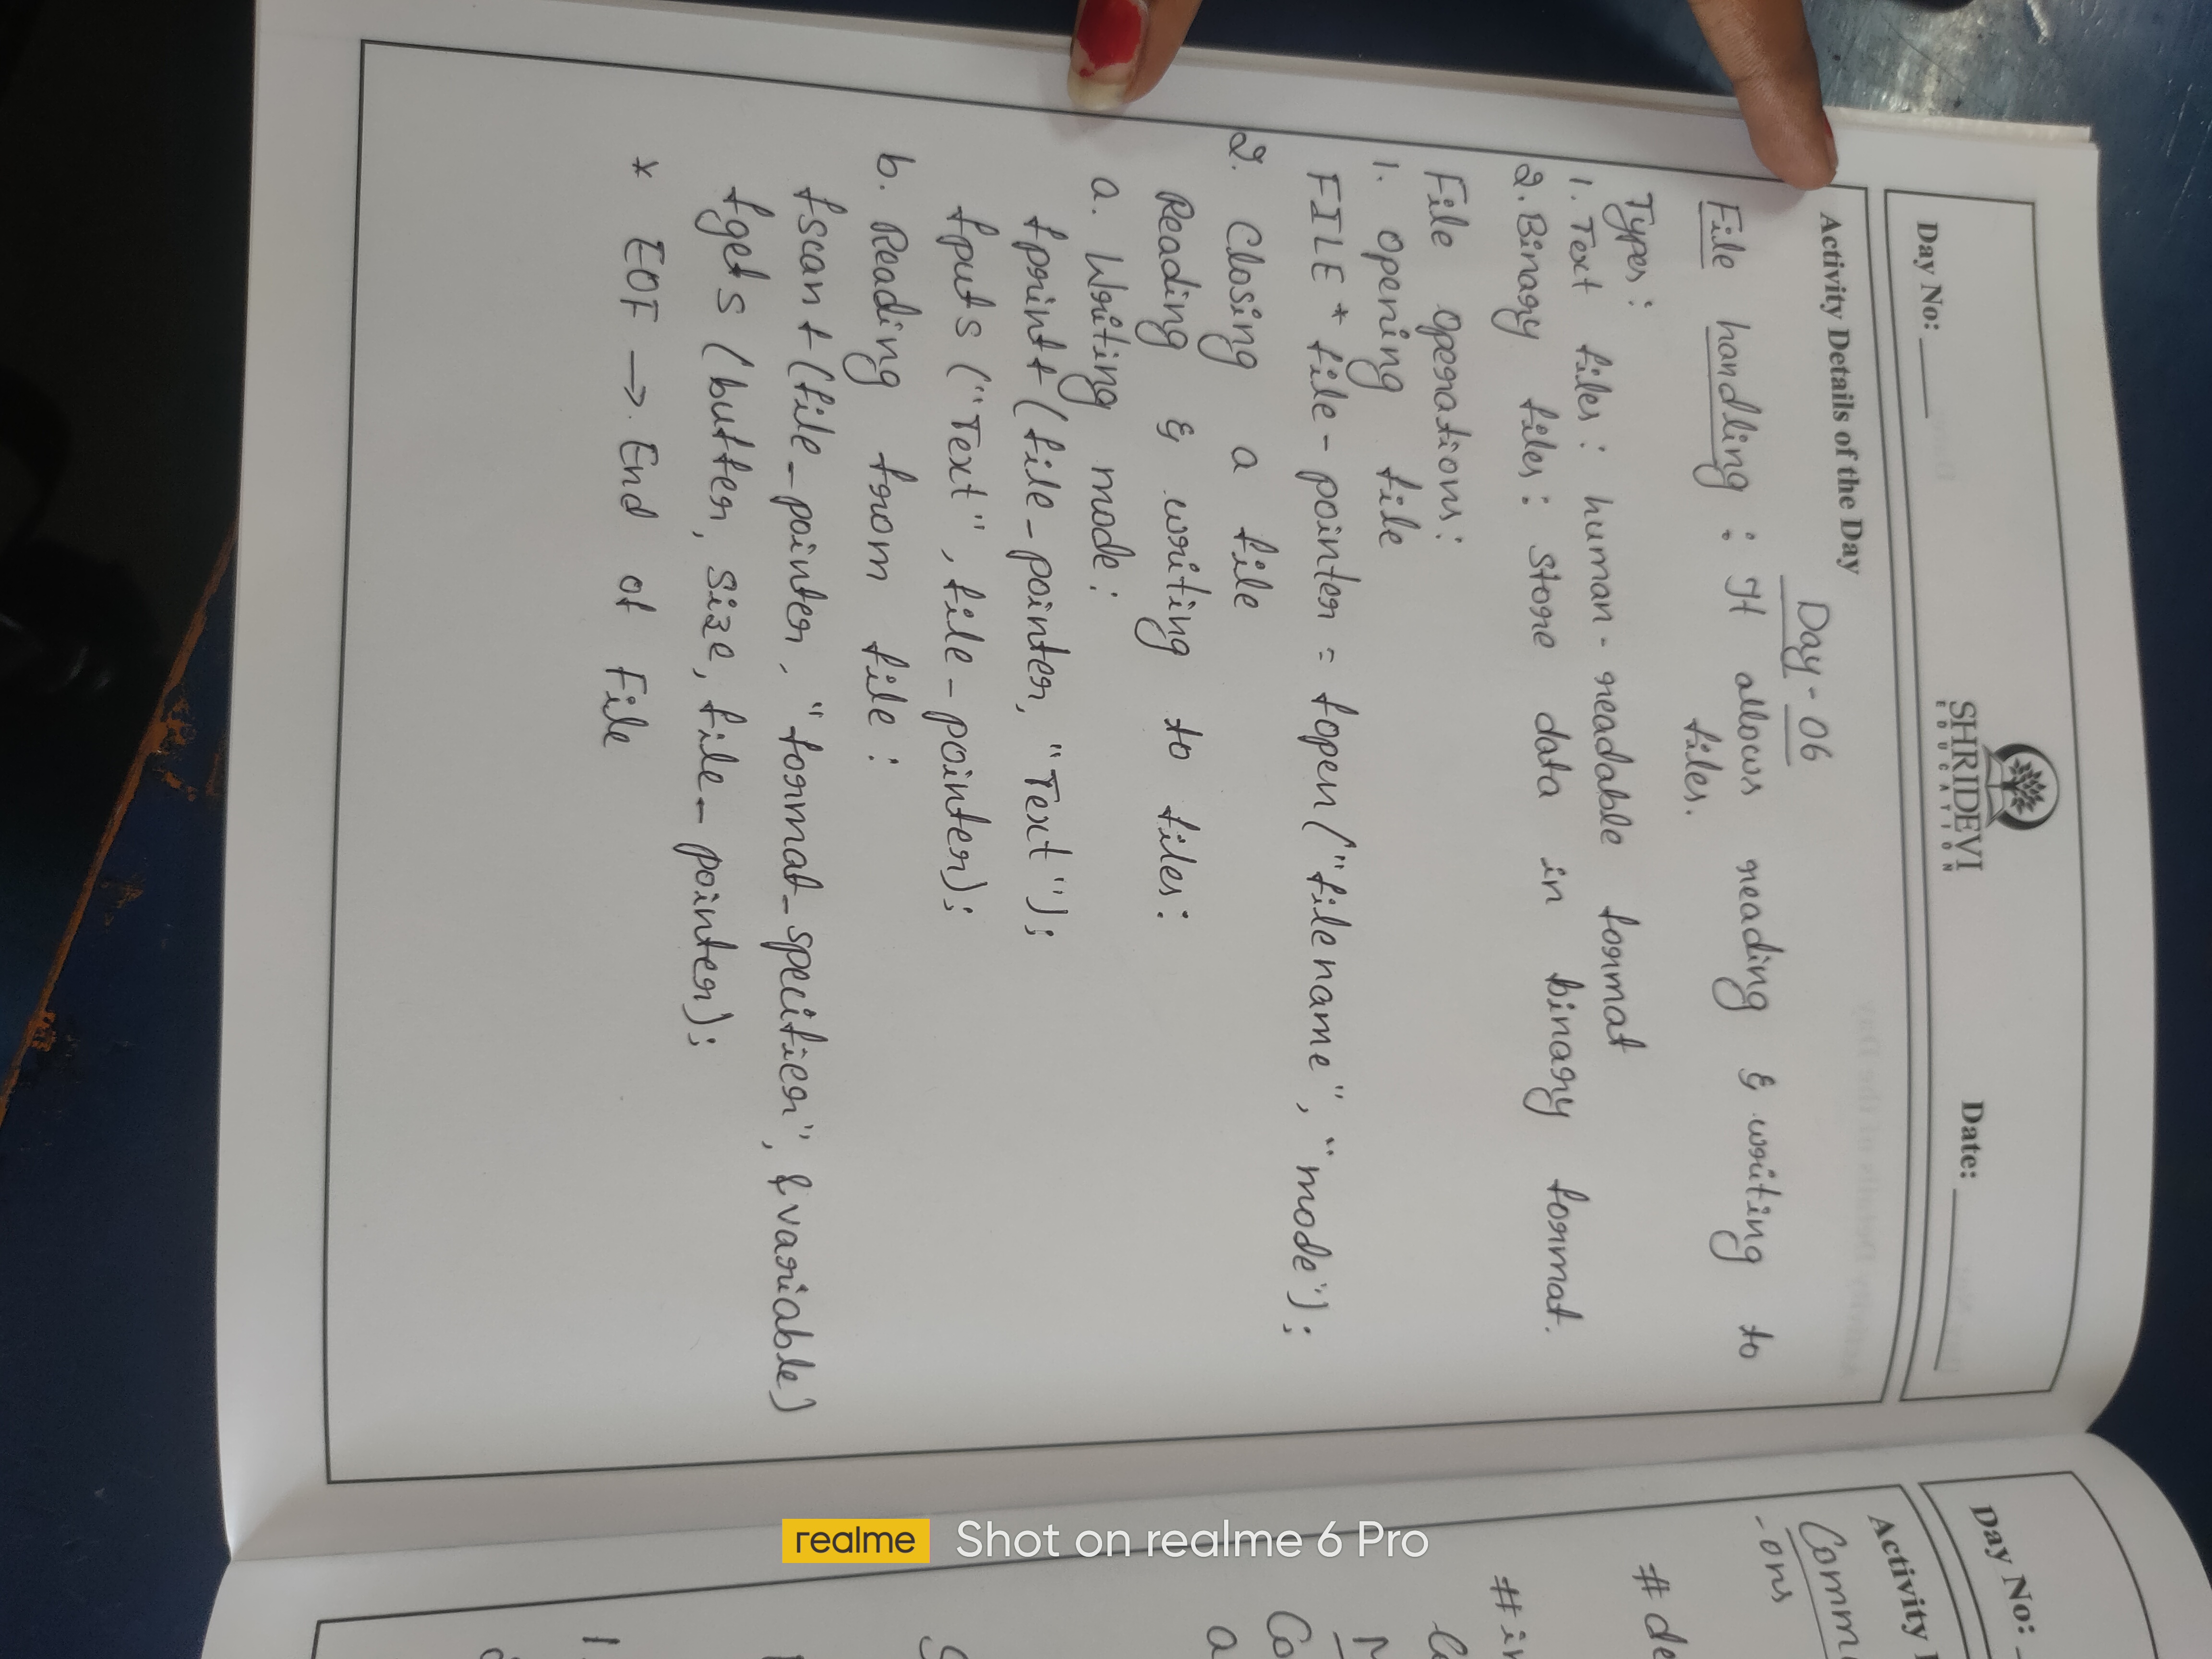 Day No:
SHRIDEVI
EDUCATION
Date:
Activity Details of the Day
Day - 06
File handling : It allows reading & writing to
files.
Types:
1. Text files: human-readable format
2. Binary files: store data in binary format.
File operations:
1. Opening file
FILE * file-pointer = fopen("filename", "mode");
2. Closing a file
Reading & writing to files:
a. Writing mode:
fprintf(file-pointer, "Text");
fputs ("Text", file-pointer);
b. Reading from file:
fscanf(file-pointer, "format-specifier", &variable)
fgets (buffer, size, file-pointer);
* EOF → End of File
Day No:
Activity
Comm
-ons
# de
# in
realme Shot on realme 6 Pro